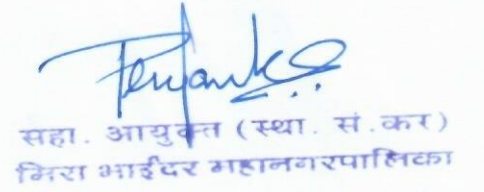 सहा. आयुक्त (स्था. सं.कर)
मिरा भाईंदर महानगरपालिका